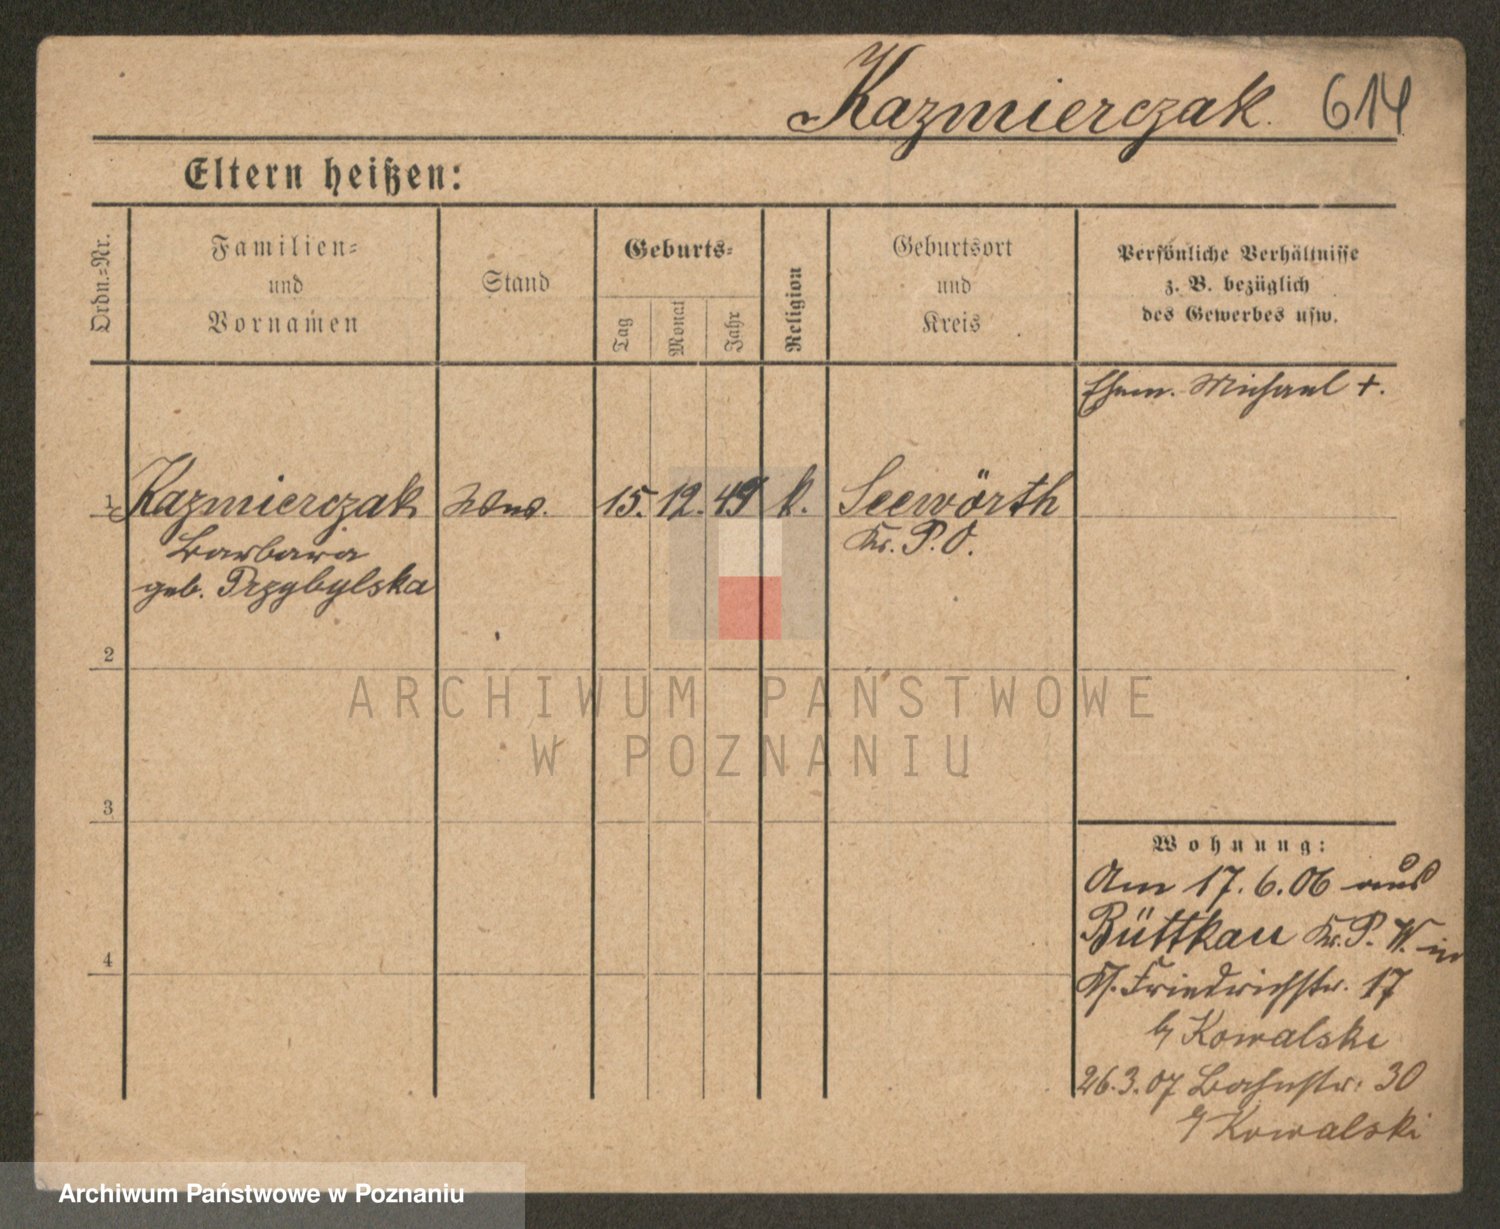 Kazmierczak 614
Eltern heißen:
Ordn.=Nr.
Familien=
und
Vornamen
Stand
Geburts=
Tag
Monat
Jahr
Religion
Geburtsort
und
Kreis
Persönliche Verhältnisse
z. B. bezüglich
des Gewerbes usw.
Ehem. Michael +.
1 Kazmierczak Wwe. 15. 12. 49 k. Seewörth
Barbara Kr. P. O.
geb. Przybylska
2
3
4
Wohnung:
Am 17. 6. 06 aus
Büttkau Kr. P. W. in
Friedrichstr. 17
b/ Kowalski
26. 3. 07 Bahnstr. 30
b/ Kowalski
ARCHIWUM PAŃSTWOWE
W POZNANIU
Archiwum Państwowe w Poznaniu